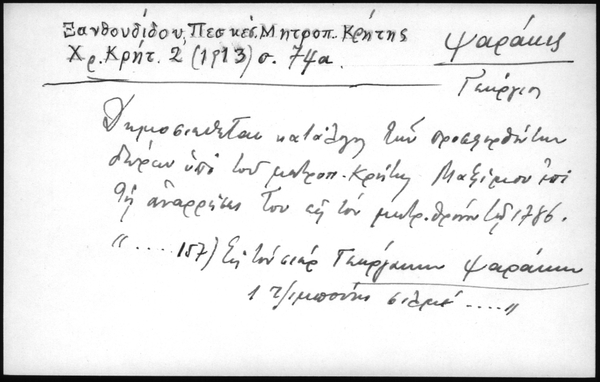 Ξανθουδίδου, Πεσκέσ. Μητροπ. Κρήτης
Χρ. Κρήτ. 2 (1913) σ. 74α.
Ψαράκης
Γεώργιος
Δημοσιεύεται κατάλογος τῶν προσφερθέντων
δώρων ὑπὸ τοῦ μητροπ. Κρήτης Μαξίμου ἐπὶ
τῇ ἀναρρήσει του εἰς τὸν μητρ. θρόνον τῆς 1786.
"....157) Εἰς τὸν σιὸρ Γεωργάκην Ψαράκην
1 τζιμπούκι ...."